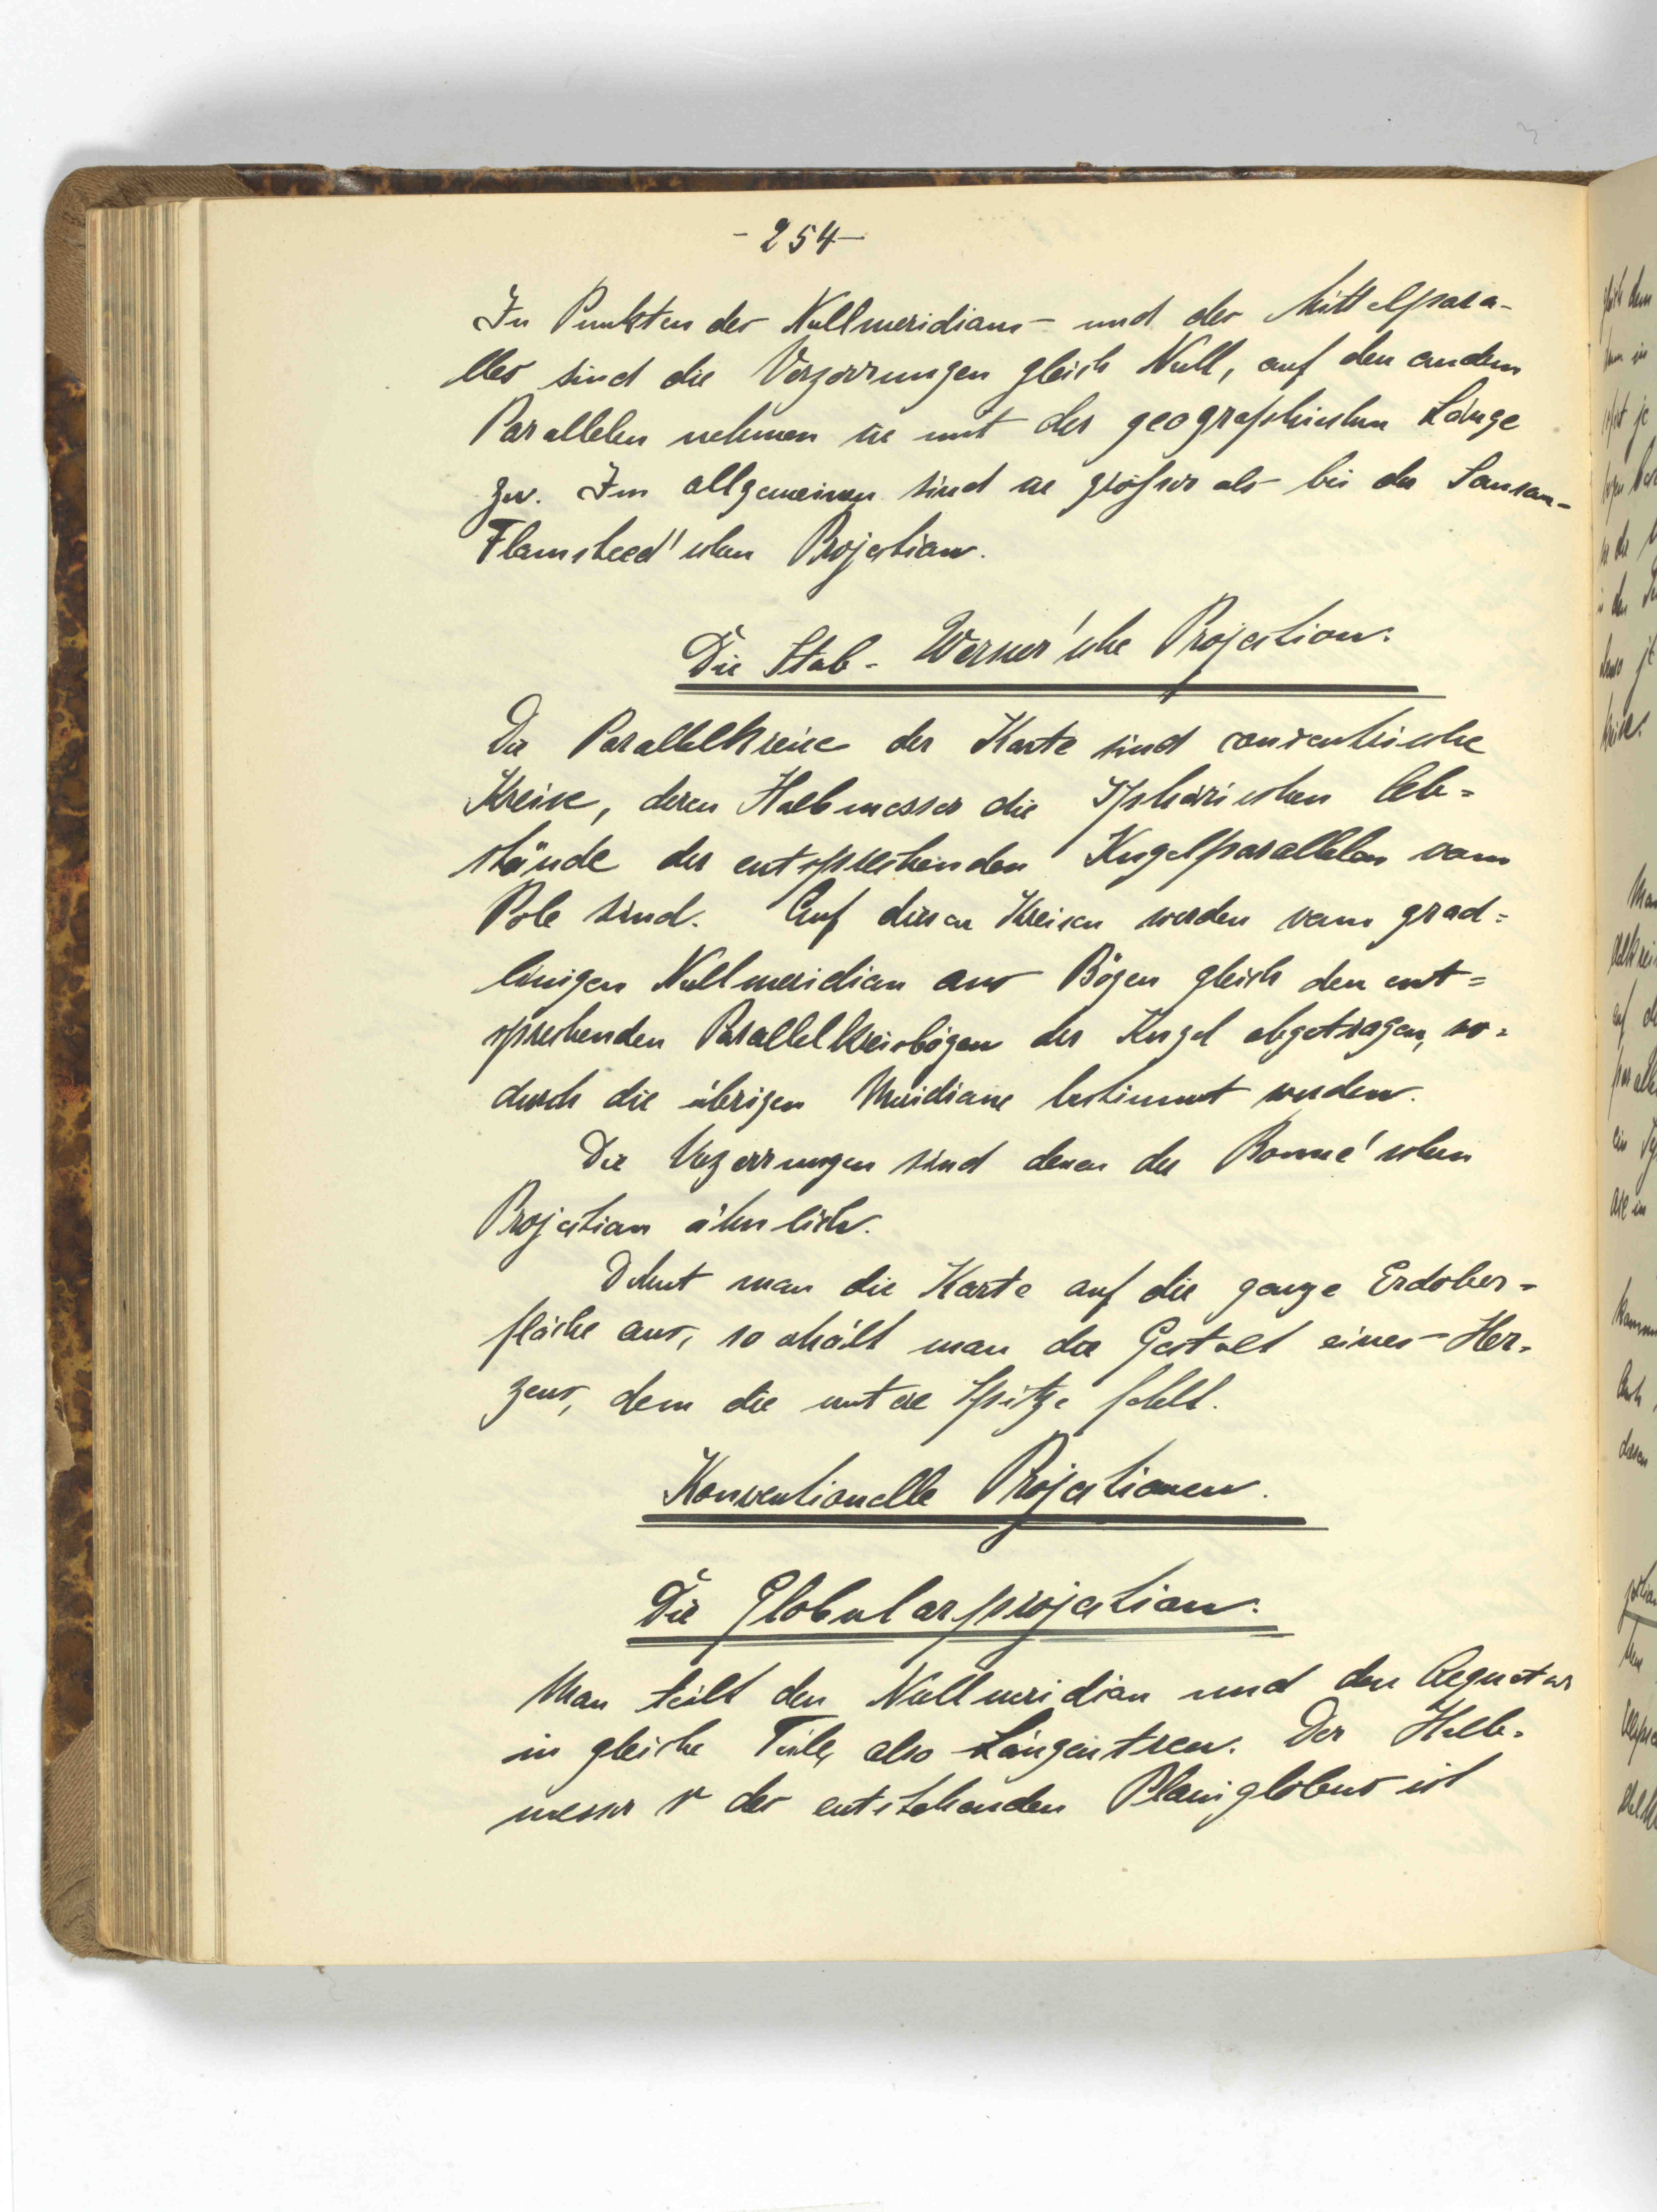 - 254 -
In Punkten des Nullmeridians und des Mittelpara-
lles sind die Verzerrungen gleich Null, auf den andern
Parallelen nehmen sie mit der geographischen Länge
zu. Im allgemeinen sind sie größer als bei der Sanson-
Flamsteed'schen Projection.
Die Stab-Werner'sche Projection.
Die Parallelkreise der Karte sind concentrische
Kreise, deren Halbmesser die sphärischen Ab=
stände der entsprechenden Kugelparallelen vom
Pole sind. Auf diesen Kreisen werden vom grad=
linigen Nullmeridian aus Bögen gleich den ent=
sprechenden Parallelkreisbögen der Kugel abgetragen, wo=
durch die übrigen Meridiane bestimmt werden.
Die Verzerrungen sind denen der Bonne'schen
Projection ähnlich.
Dehnt man die Karte auf die ganze Erdober=
fläche aus, so erhält man die Gestalt eines Her=
zens, dem die untere Spitze fehlt.
Konventionelle Projectionen.
Die Globularprojection.
Man teilt den Nullmeridian und den Aequator
in gleiche Teile, also Längentreu. Der Halb=
messer r des entstehenden Planiglobens ist